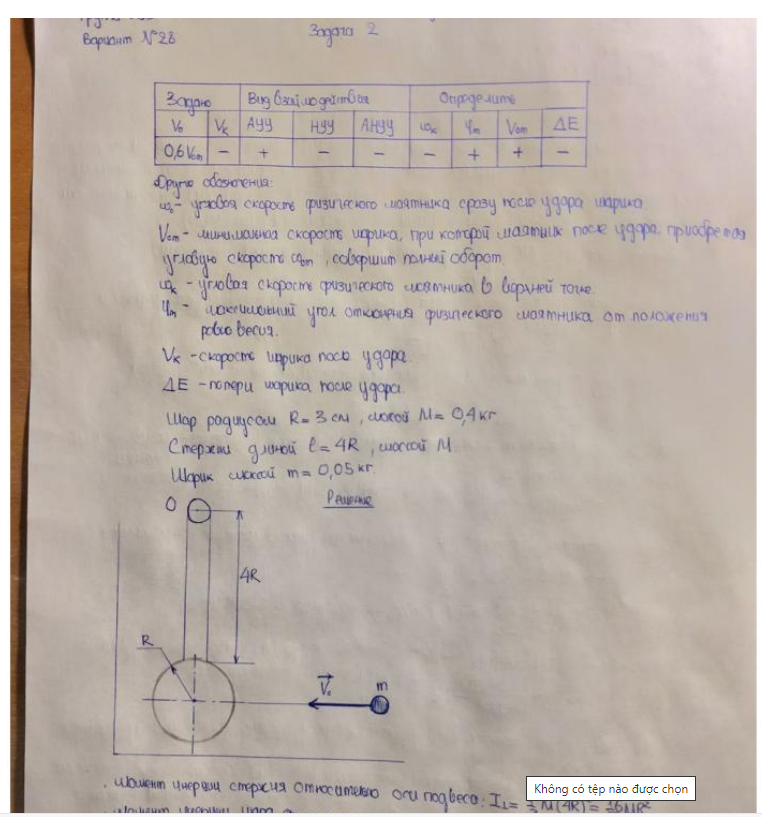 Вариант №28
Задача 2
Задано Вид взаимодействия Определить
V₀ Vк АУУ НУУ АНУУ ωк φm V₀m ΔE
0,6V₀m – + – – – + + –
Другие обозначения:
ω₀ - угловая скорость физического маятника сразу после удара шарика.
V₀m - минимальная скорость шарика, при которой маятник после удара, приобретая
угловую скорость ω₀m, совершит полный оборот.
ωк - угловая скорость физического маятника в верхней точке.
φm - максимальный угол отклонения физического маятника от положения
равновесия.
Vк - скорость шарика после удара.
ΔE - потери шарика после удара.
Шар радиусом R = 3 см, массой M = 0,4 кг
Стержень длиной l = 4R, массой M.
Шарик массой m = 0,05 кг.
Решение
O
4R
R
V₀
m
Момент инерции стержня относительно оси подвеса: I₁ =
Không có tệp nào được chọn
Момент инерции шара